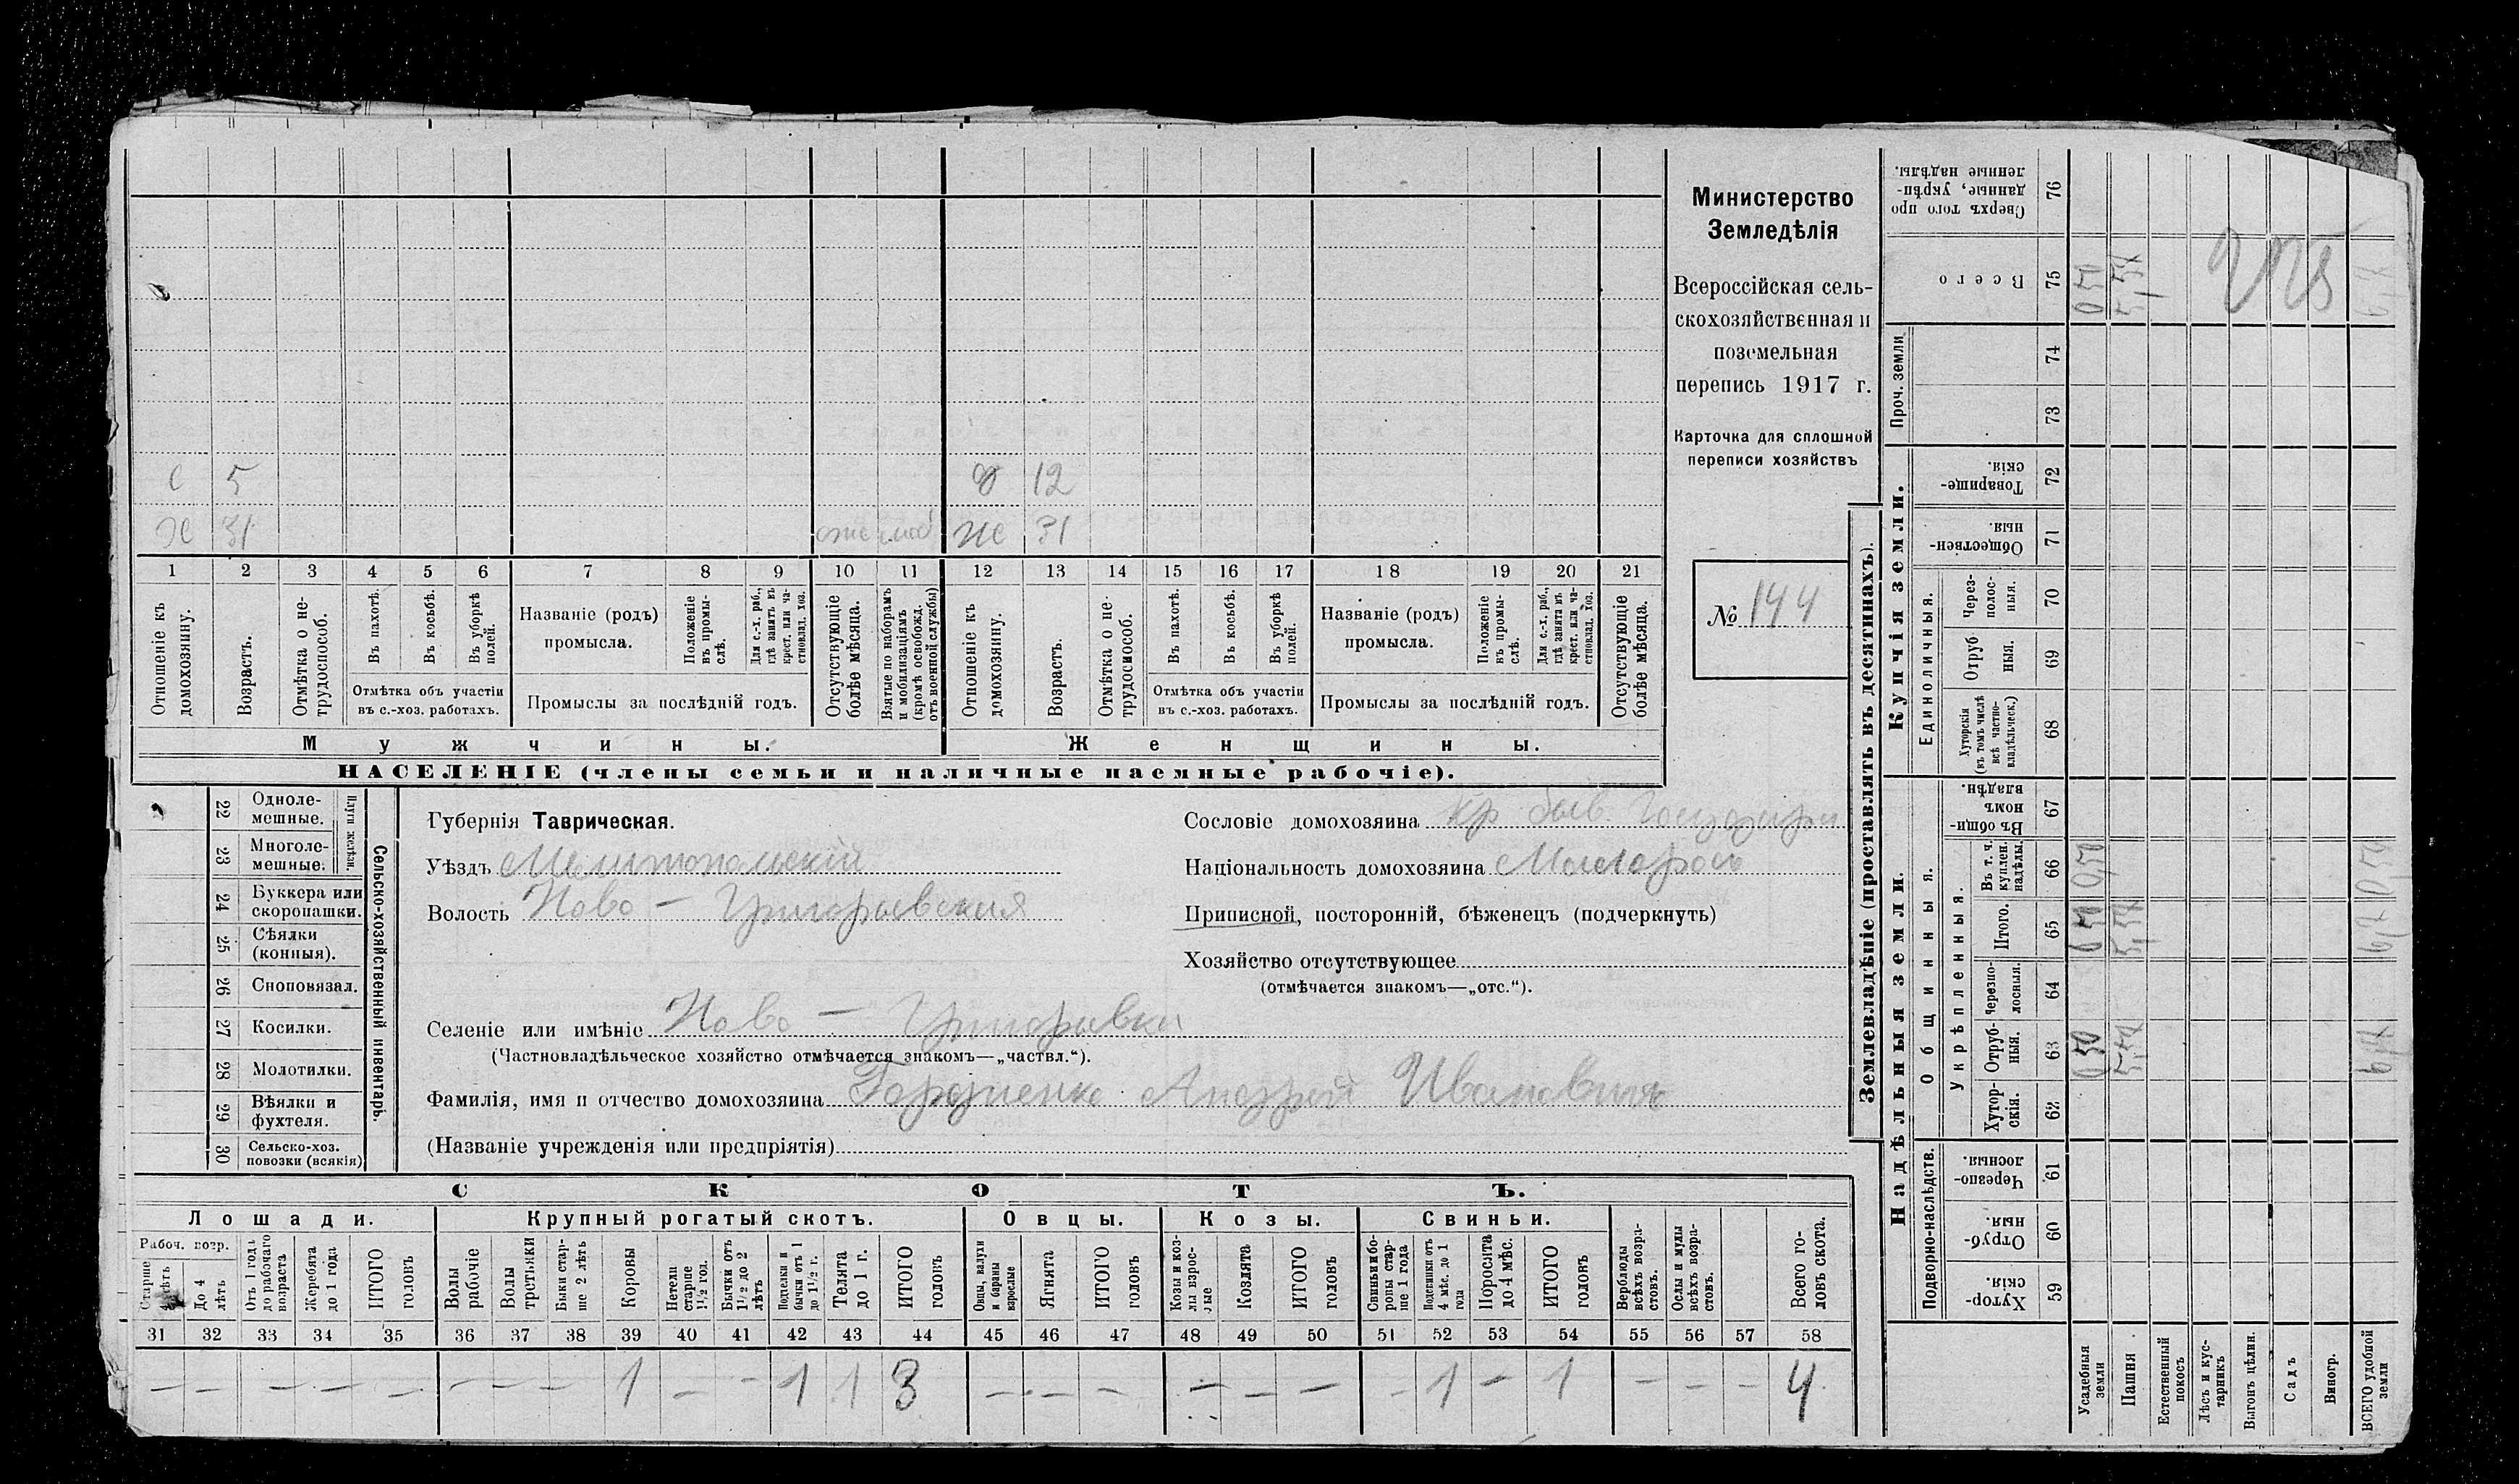 Министерство
Земледѣлія
Всероссійская сель-
скохозяйственная и
поземельная
перепись 1917 г.
Карточка для сплошной
переписи хозяйствъ
№ 144
С 5
12
Х 31 Ж 31
1 2 3 4 5 6 7 8 9 10 11 12 13 14 15 16 17 18 19 20 21
Отношеніе къ домохозяину.
Возрастъ.
Отмѣтка о не-трудоспособ.
Въ пахотѣ.
Въ косьбѣ.
Въ уборкѣ полей.
Отмѣтка объ участіи
въ с.-хоз. работахъ.
Названіе (родъ)
промысла.
Положеніе въ промы-слѣ.
Для с.-х. раб., гдѣ занятъ въ крест. или ча-стновлад. хоз.
Промыслы за послѣдній годъ.
Отсутствующіе болѣе мѣсяца.
Взятые по наборамъ и мобилизаціямъ (кромѣ освобожд. отъ военной службы)
Отношеніе къ домохозяину.
Возрастъ.
Отмѣтка о не-трудоспособ.
Въ пахотѣ.
Въ косьбѣ.
Въ уборкѣ полей.
Отмѣтка объ участіи
въ с.-хоз. работахъ.
Названіе (родъ)
промысла.
Положеніе въ промы-слѣ.
Для с.-х. раб., гдѣ занятъ въ крест. или ча-стновлад. хоз.
Промыслы за послѣдній годъ.
Отсутствующіе болѣе мѣсяца.
Мужчины. Женщины.
НАСЕЛЕНІЕ (члены семьи и наличные наемные рабочіе).
22 Одноле-мешные.
23 Многоле-мешные.
Плуги желѣзн.
24 Буккера или скоропашки.
25 Сѣялки (конныя).
26 Сноповязал.
27 Косилки.
28 Молотилки.
29 Вѣялки и фухтеля.
30 Сельско-хоз. повозки (всякія)
Сельско-хозяйственный инвентарь.
Губернія Таврическая.
Уѣздъ Мелитопольскій
Волость Ново-Григорьевская
Селеніе или имѣніе Ново-Григорьевка
(Частновладѣльческое хозяйство отмѣчается знакомъ—„частвл.“).
Фамилія, имя и отчество домохозяина Гордиенко Андрей Ивановичъ
(Названіе учрежденія или предпріятія)
Сословіе домохозяина кр. быв.
Національность домохозяина Малорос
Приписной, посторонній, бѣженецъ (подчеркнуть)
Хозяйство отсутствующее
(отмѣчается знакомъ—„отс.“).
СКОТЪ.
Лошади. Крупный рогатый скотъ. Овцы. Козы. Свиньи.
Рабоч. возр.
До 4 лѣтъ
Отъ 1 года до рабочаго возраста
Жеребята до 1 года
ИТОГО головъ
Волы рабочіе
Волы третьяки
Быки стар-ше 2 лѣтъ
Коровы
Нетели старше 1½ год.
Бычки отъ 1½ до 2 лѣтъ
Подтелки и бычки отъ 1 до 1½ г.
Телята до 1 г.
ИТОГО головъ
Овцы, валухи и бараны взрослые
Ягнята
ИТОГО головъ
Козы и коз-лы взрос-лые
Козлята
ИТОГО головъ
Свиньи и бо-ровы стар-ше 1 года
Подсвинки отъ 4 мѣс. до 1 года
Поросята до 4 мѣс.
ИТОГО головъ
Верблюды всѣхъ возра-стовъ.
Ослы и мулы всѣхъ возра-стовъ.
Всего го-ловъ скота.
31 32 33 34 35 36 37 38 39 40 41 42 43 44 45 46 47 48 49 50 51 52 53 54 55 56 57 58
— — — — — — — — 1 — — 1 1 3 — — — — — — — 1 — 1 — — — 4
Землевладѣніе (проставлять въ десятинахъ).
Надѣльныя земли. Купчія земли. Проч. земли
Подворно-наслѣдств.
Общинныя.
Укрѣпленныя.
Единоличныя.
Сверхъ того про данные, укрѣп-ленные надѣлы. 76
Всего 75 0,50 5,57
74
73
Товарище-скія. 72
Обществен-ныя. 71
Через-полос-ныя. 70
Отруб ныя. 69
Хуторскія (въ томъ числѣ всѣ частно-владѣльческ.) 68
Въ общи-номъ владѣн. 67
Въ т. ч. куплен. надѣлы. 66 0,50
Итого. 65 0,50 5,57
Черезпо-лосныя. 64
Отруб-ныя. 63 0,50 5,57
Хутор-скія. 62
Черезпо-лосныя. 61
Отруб-ныя. 60
Хутор-скія. 59
Усадебныя земли
Пашня
Естественный покосъ
Лѣсъ и кус-тарникъ
Выгонъ цѣлин.
Садъ
Виногр.
ВСЕГО удобной земли